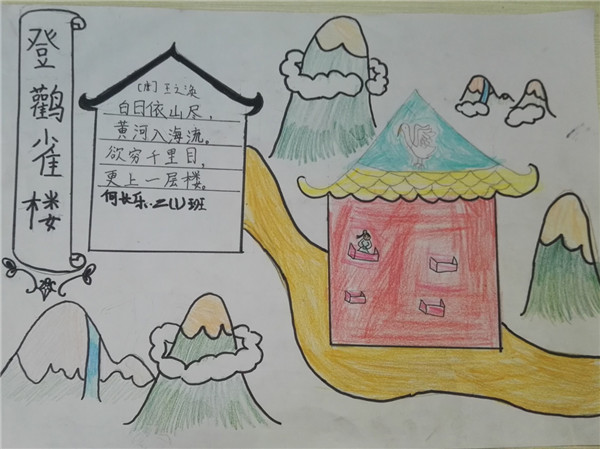 登鹳雀楼
[唐] 王之涣
白日依山尽，
黄河入海流。
欲穷千里目，
更上一层楼。
何长乐.二(1)班